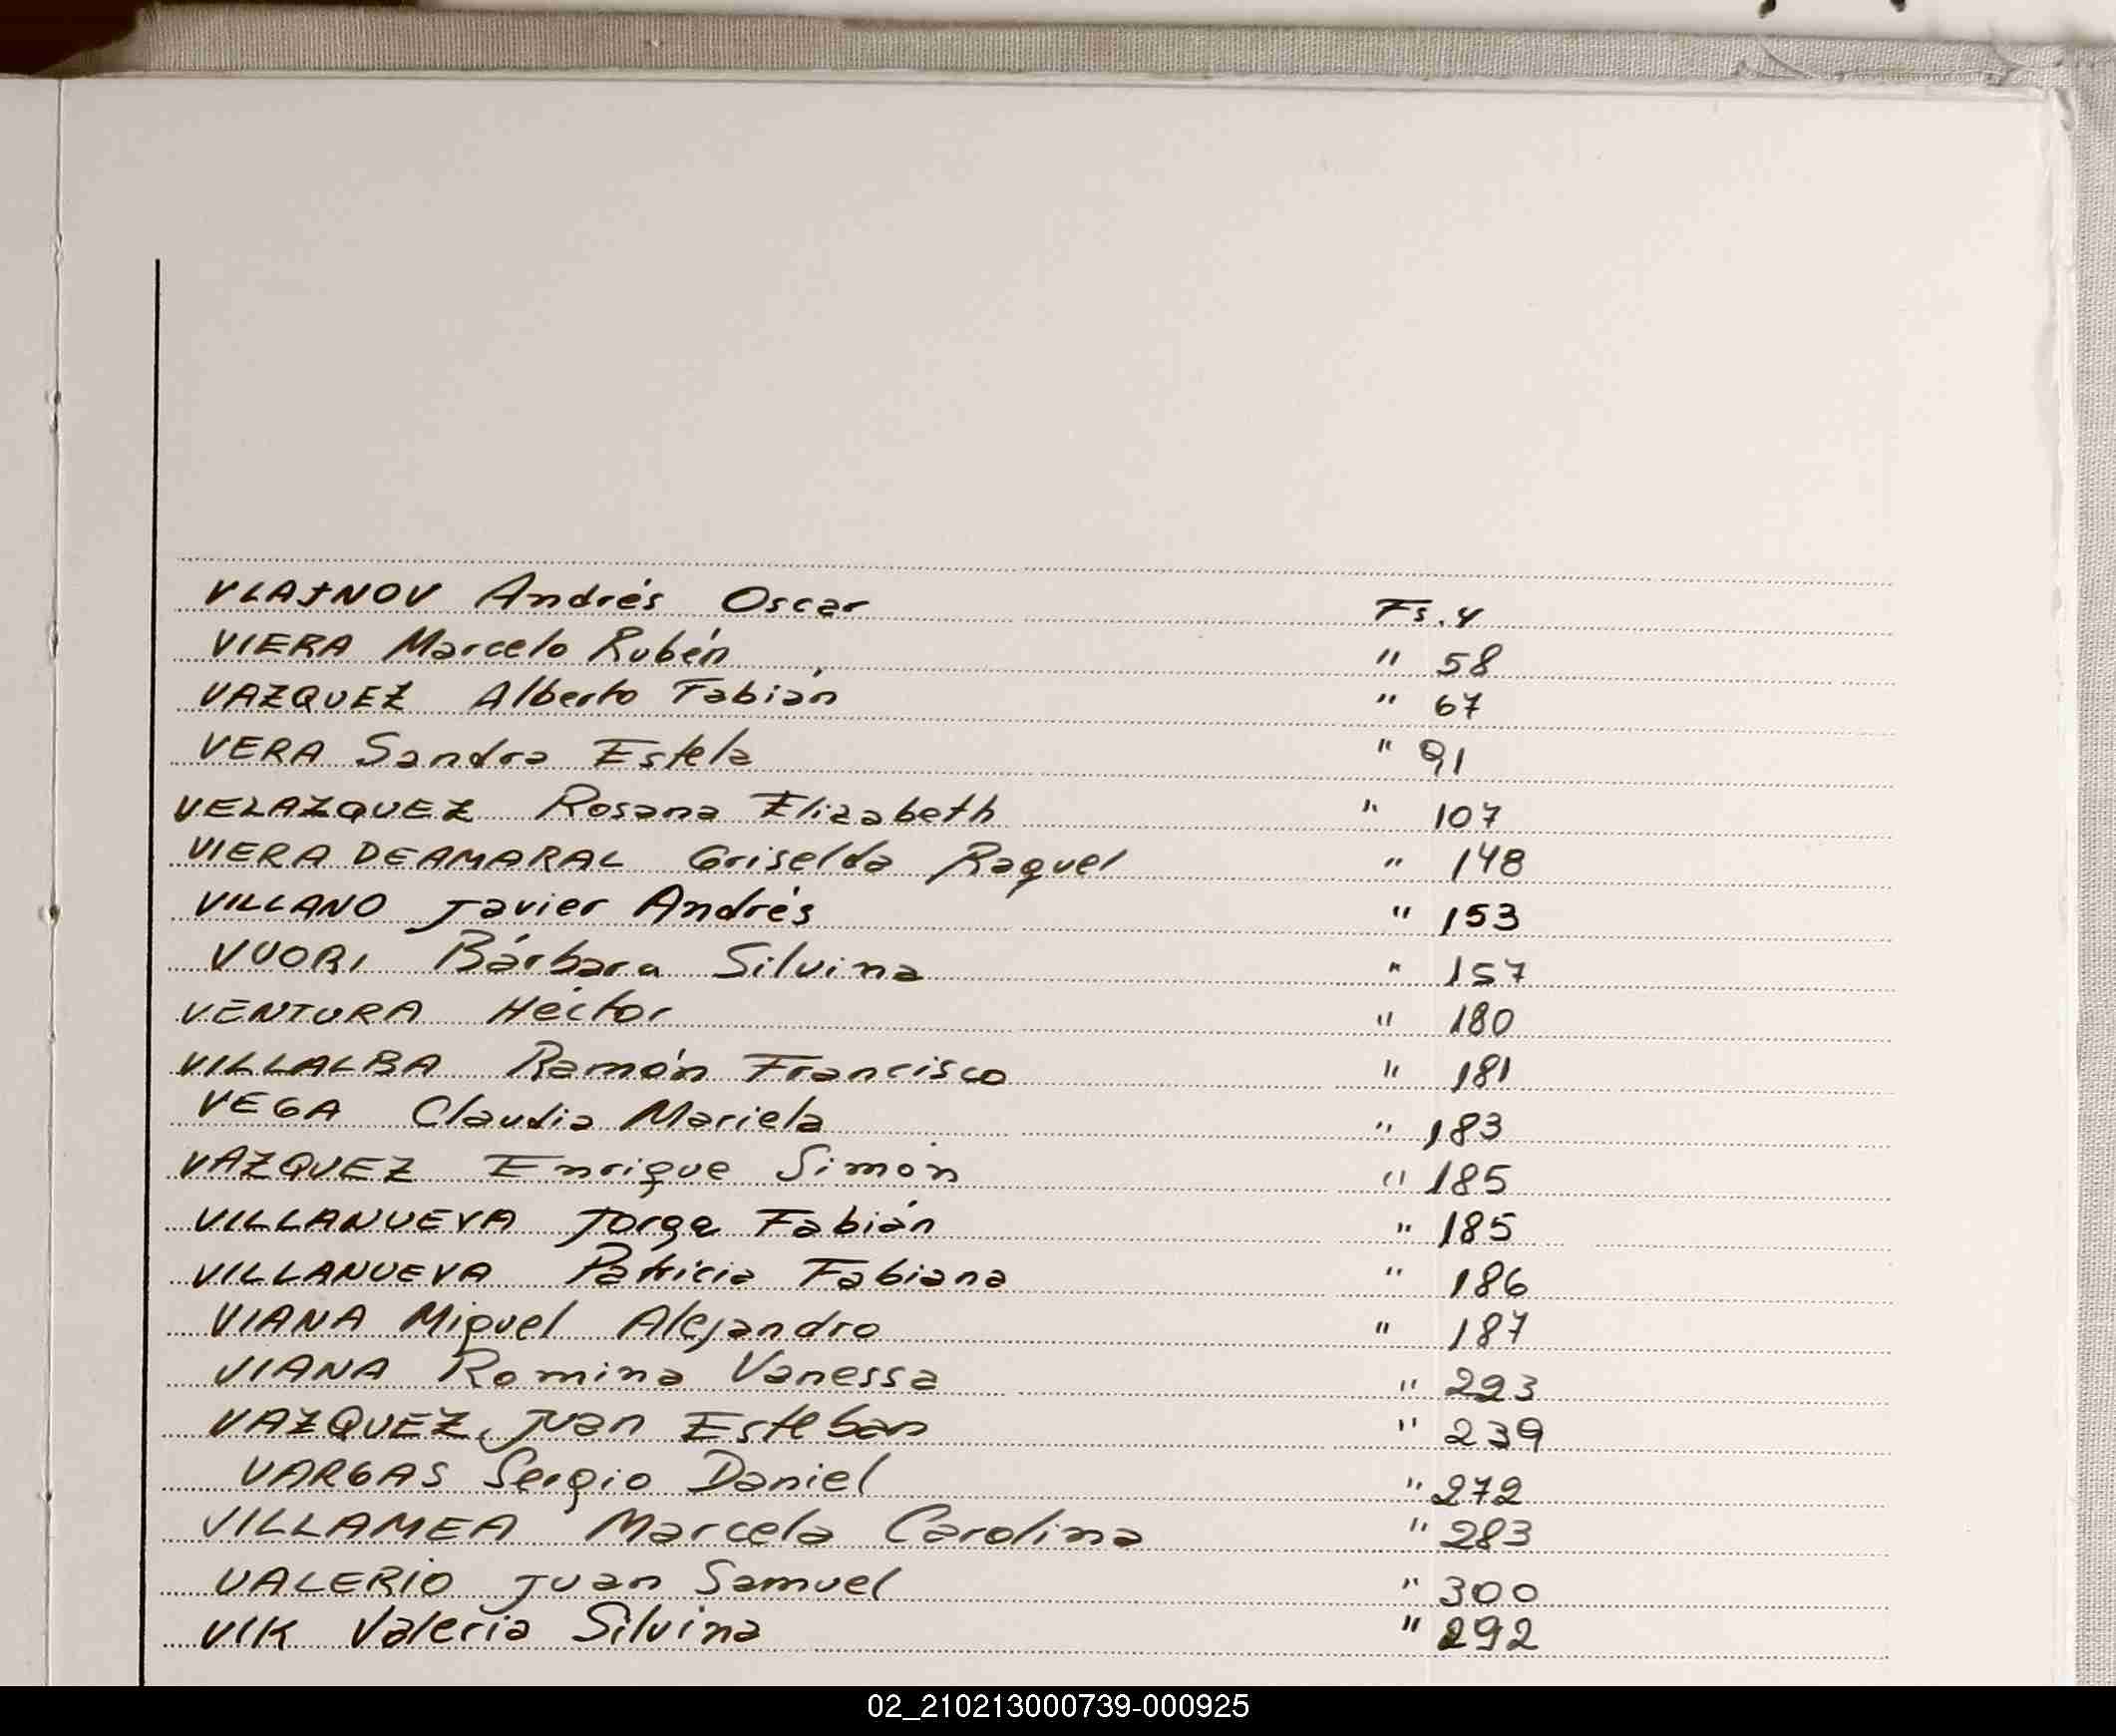 VLAJNOV Andrés Oscar Fs. 4
VIERA Marcelo Rubén " 58
VAZQUEZ Alberto Fabián " 67
VERA Sandra Estela " 91
VELAZQUEZ Rosana Elizabeth " 107
VIERA DEAMARAL Griselda Raquel " 148
VILLANO Javier Andrés " 153
VUORI Bárbara Silvina " 157
VENTURA Héctor " 180
VILLALBA Ramón Francisco " 181
VEGA Claudia Mariela " 183
VAZQUEZ Enrique Simón " 185
VILLANUEVA Jorge Fabián " 185
VILLANUEVA Patricia Fabiana " 186
VIANA Miguel Alejandro " 187
VIANA Romina Vanessa " 223
VAZQUEZ, Juan Esteban " 239
VARGAS Sergio Daniel " 272
VILLAMEA Marcela Carolina " 283
VALERIO Juan Samuel " 300
VIK Valeria Silvina " 292
02_210213000739-000925